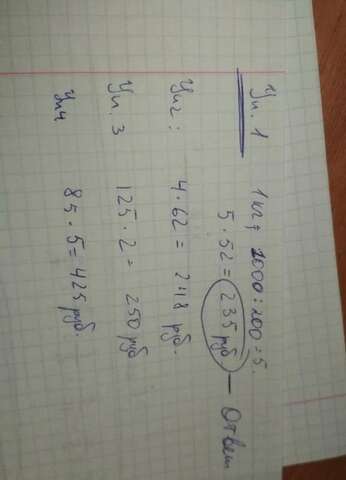 Уп. 1 1 кг = 1000 : 200 = 5.
5 · 52 = 235 руб — Ответ
Уп 2 : 4 · 62 = 248 руб.
Уп. 3 125 · 2 = 250 руб
Уп 4 85 · 5 = 425 руб.